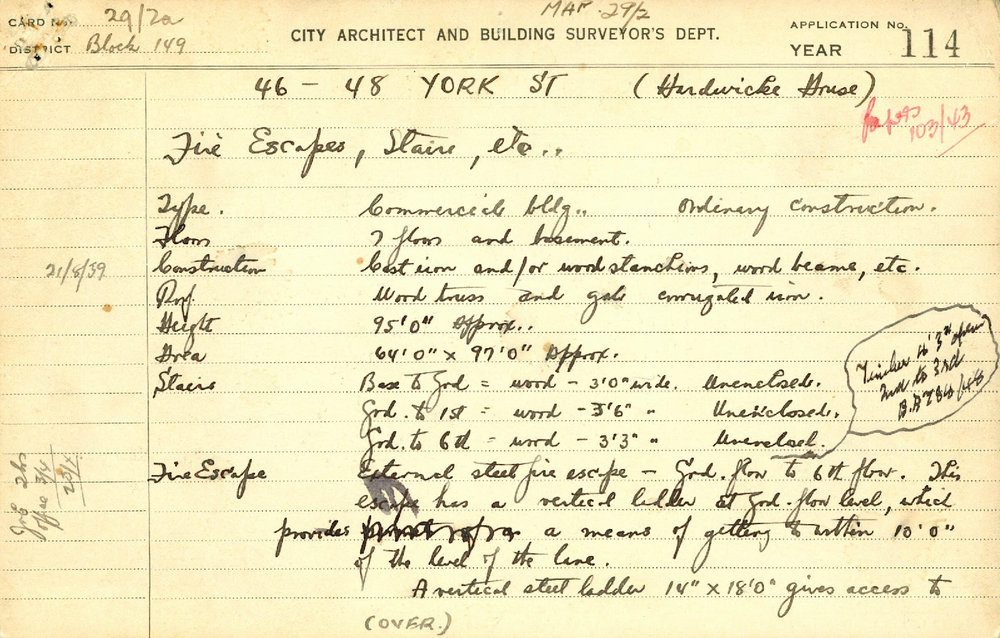 CARD No. 29/2a
MAP 29/2
DISTRICT Block 149
CITY ARCHITECT AND BUILDING SURVEYOR'S DEPT.
APPLICATION No.
YEAR
114
46 - 48 YORK ST (Hardwicke House)
papers 103/43
Fire Escapes, Stairs, etc..
Type. Commercial bldg.. Ordinary construction.
Floors 7 floors and basement.
21/8/39
Construction Cast iron and/or wood stanchions, wood beams, etc.
Roof. Wood truss and galv corrugated iron.
Height 95'0" Approx..
Area 64'0" x 97'0" Approx.
Stairs Base to Grd = wood - 3'0" wide. Unenclosed.
Grd. to 1st = wood - 3'6" " Unenclosed.
Grd. to 6th = wood - 3'3" " Unenclosed.
Timber 4'3" open
2nd to 3rd
B.A 786/46
Fire Escape External steel fire escape - Grd. floor to 6th floor. This
escape has a vertical ladder at Grd. floor level, which
provides a means of getting to within 10'0"
of the level of the lane.
A vertical steel ladder 14" x 18'0" gives access to
(OVER.)
Job 2 hrs
Office 3/4